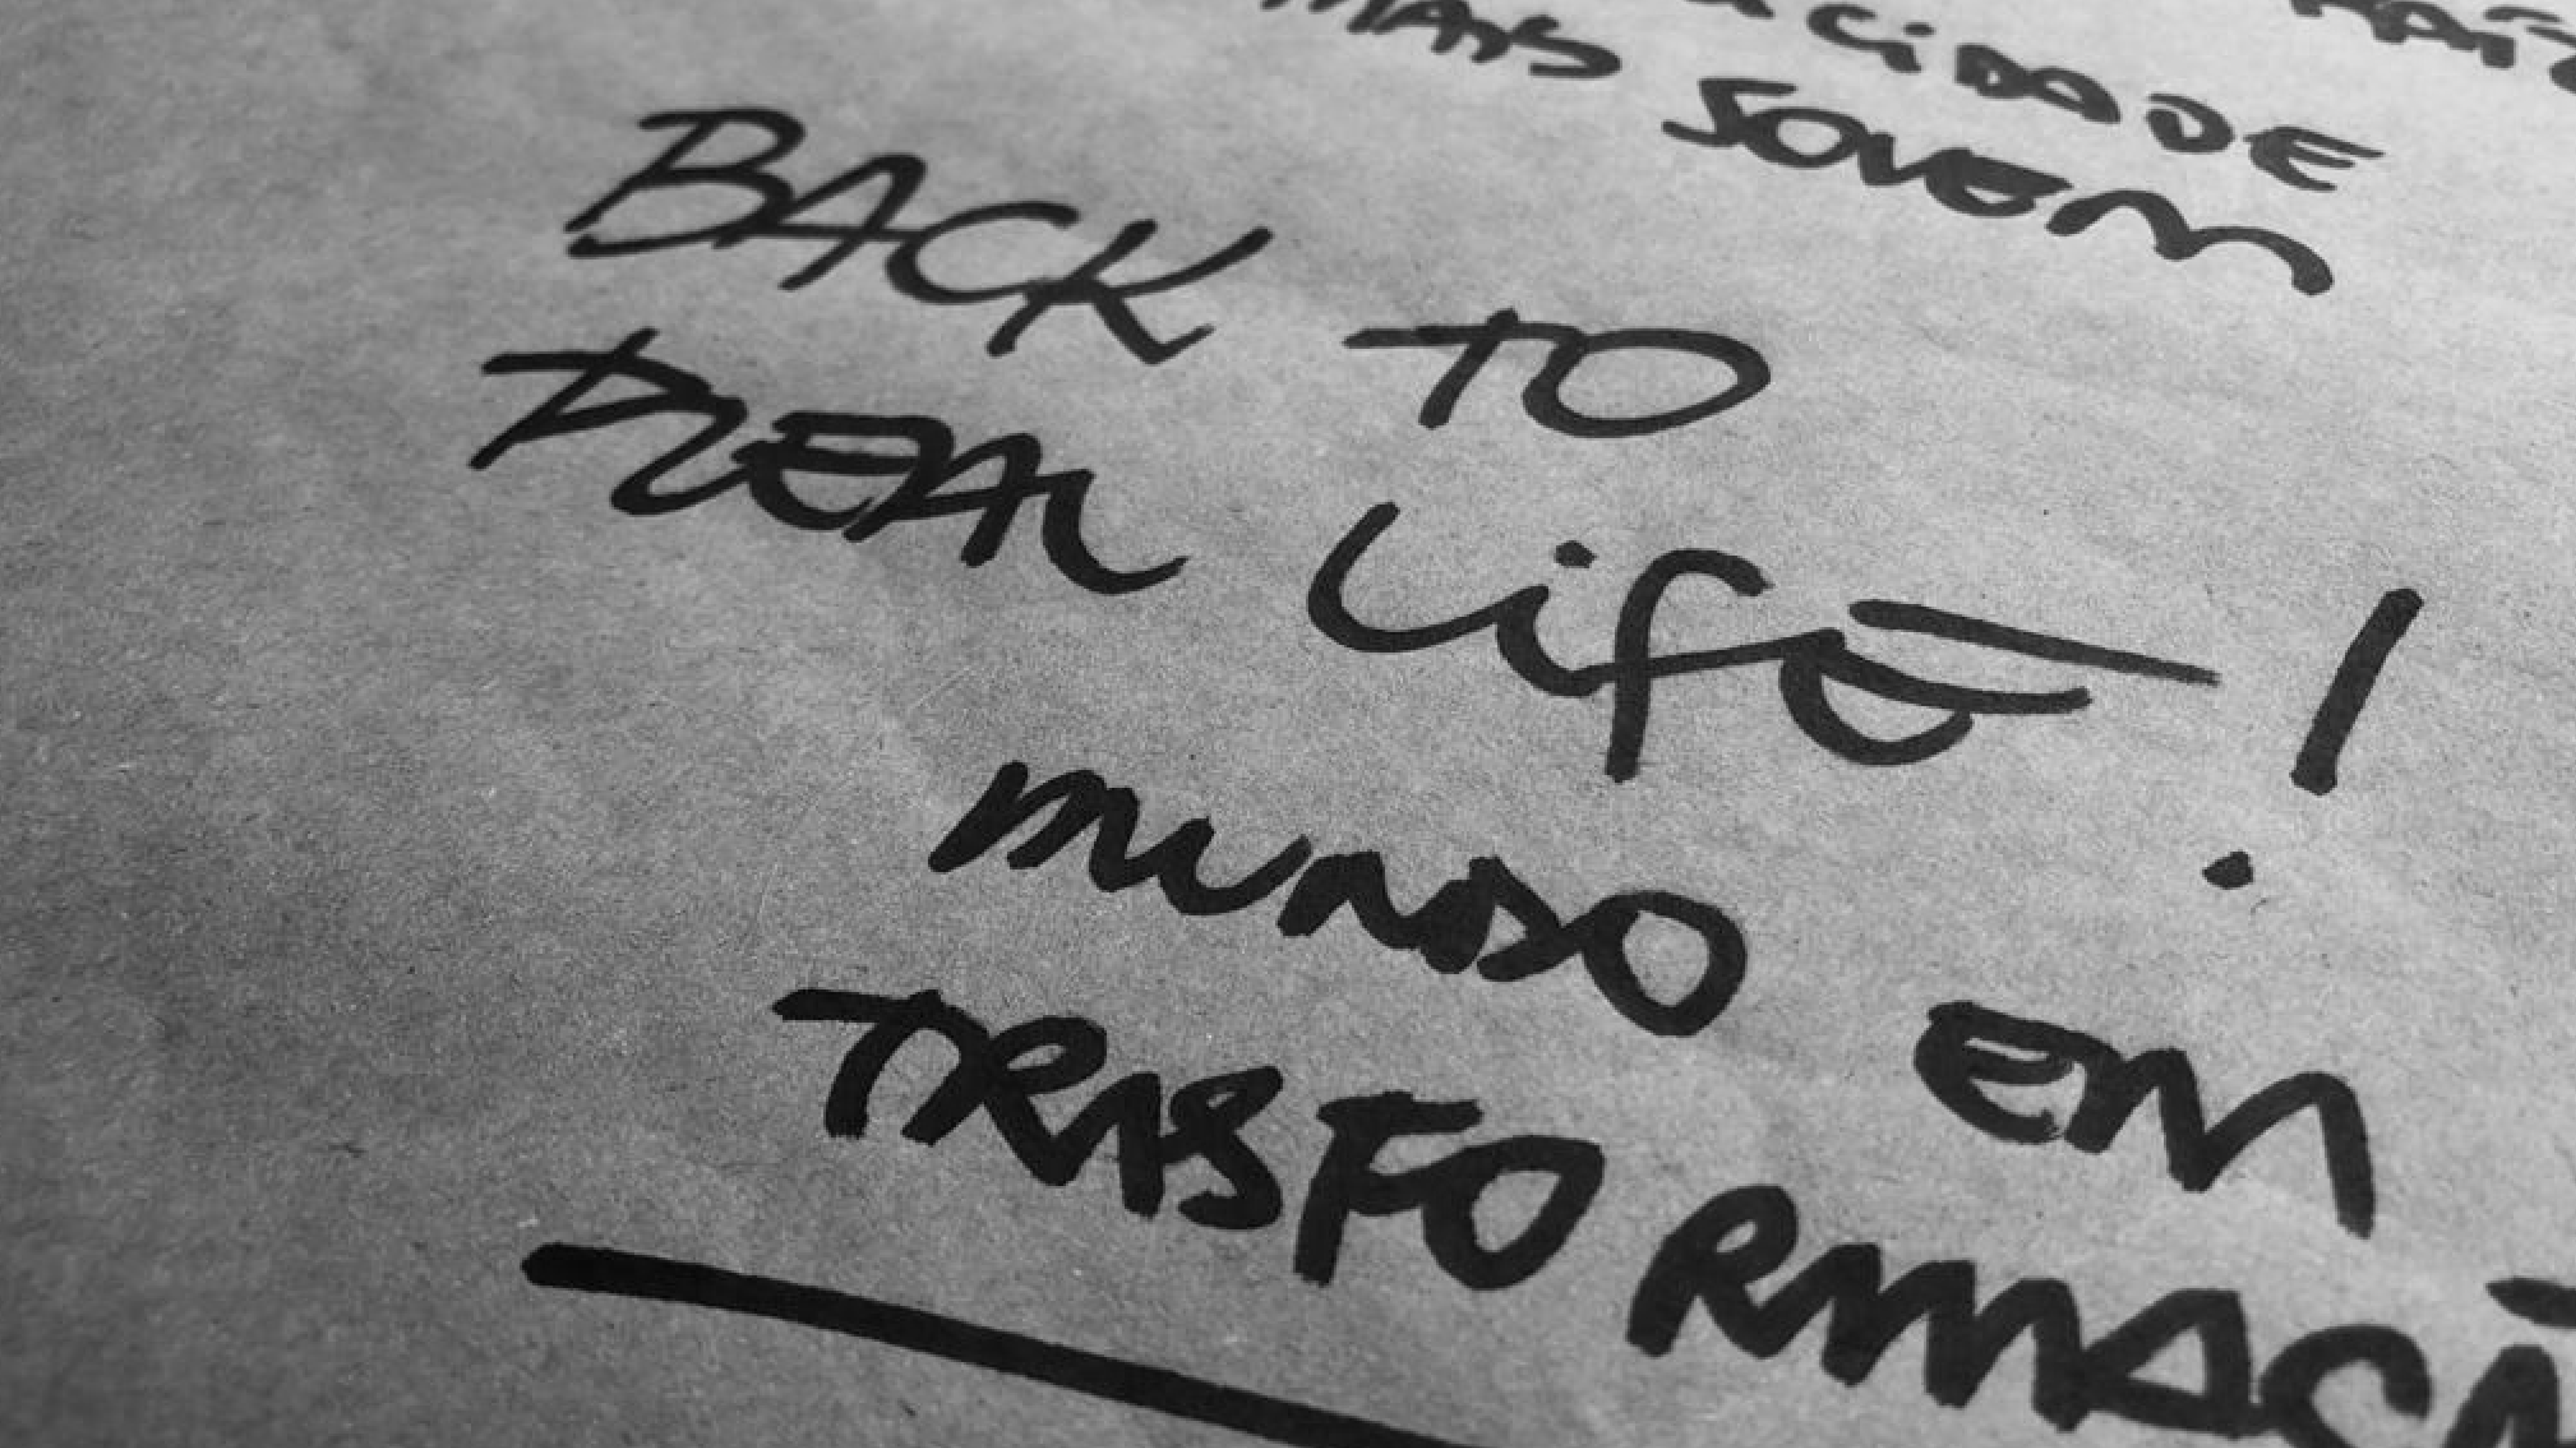 CIDADE
MAIS JOVEM
BACK TO
REAL LiFE!
MUNDO EM
TRASFORMAÇÃ